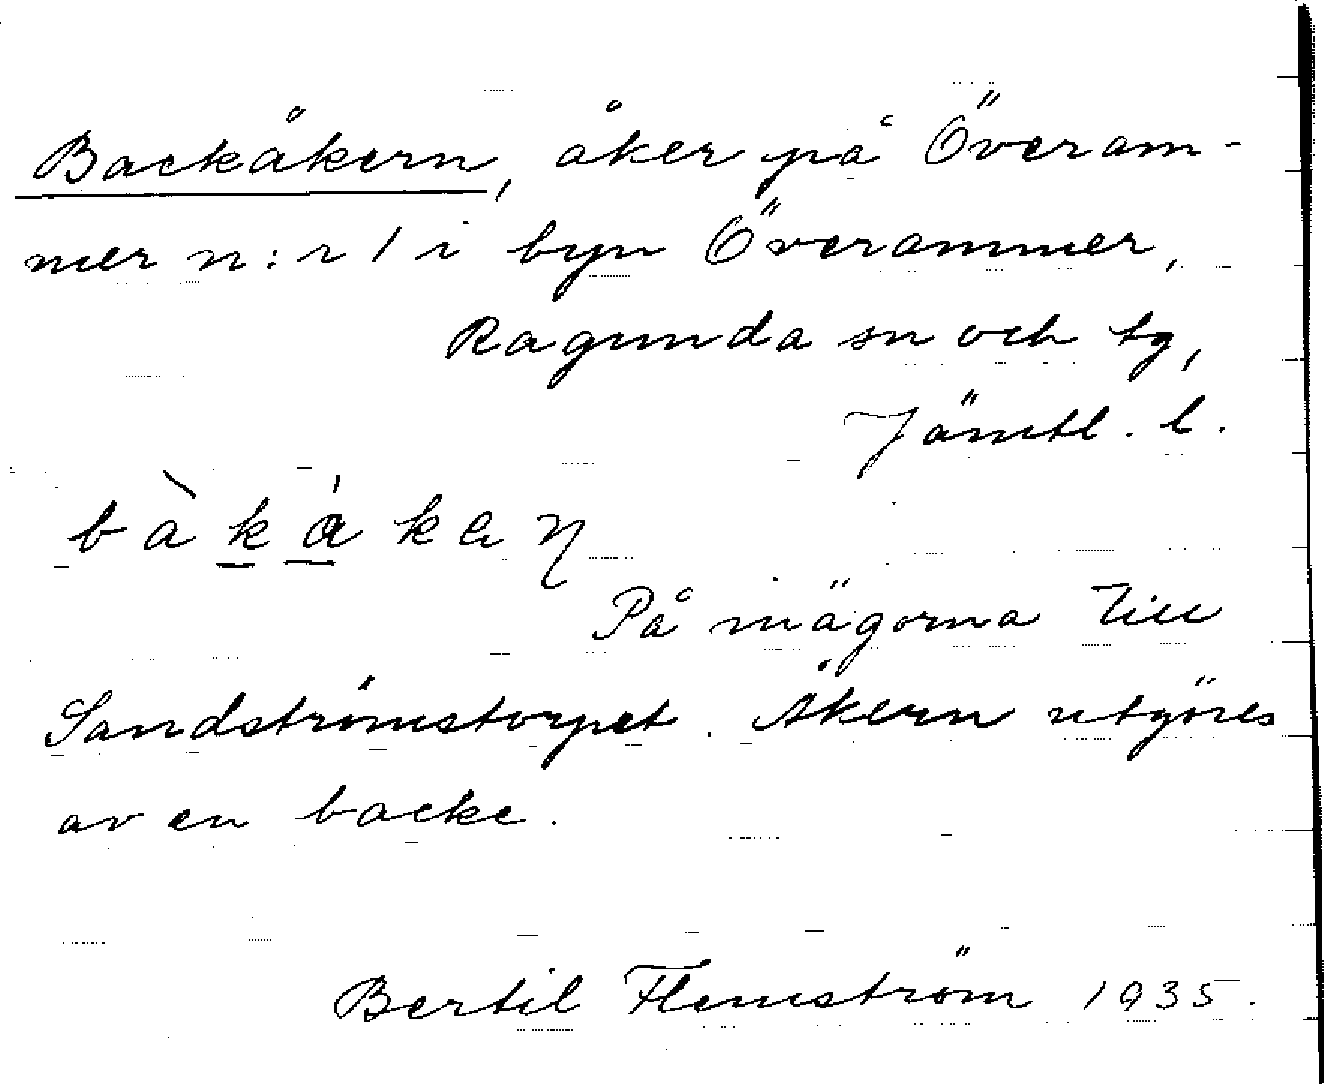 Backåkern, åker på Överam-
mer n:r 1 i byn Överammer,
Ragunda sn och tg,
Jämtl. l.
På mägorna till
Sandströmstorpet. Åkern utgöres
av en backe.
Bertil Flemström 1935.